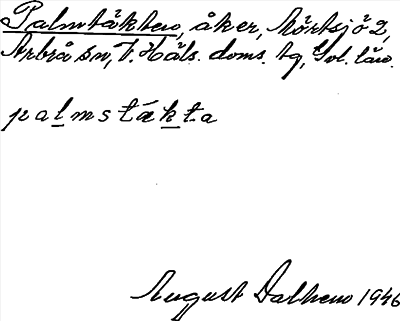 Palmtäkten, åker, Mörtsjö 2,
Arbrå sn, V. Häls. doms. tg, Gvl. län.
palmstákta
August Dalhem 1946